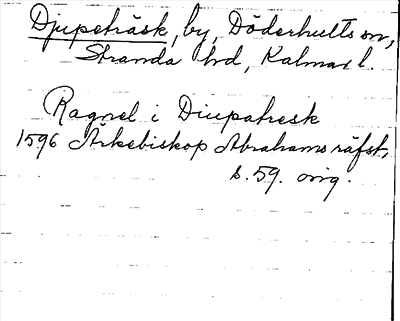 Djupeträsk, by, Döderhults sn,
Stranda hd, Kalmar l.
Ragnel i Diupatresk
1596 Ärkebiskop Abrahams räfst,
s. 59. orig.